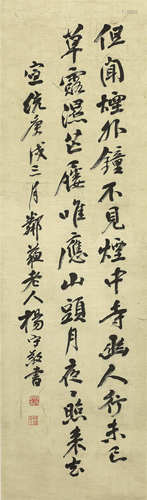 但聞煙外鐘不見煙中寺幽人行未已
草露濕芒屨唯應山頭月夜〻照來去
宣統庚戌三月鄰蘇老人楊守敬書